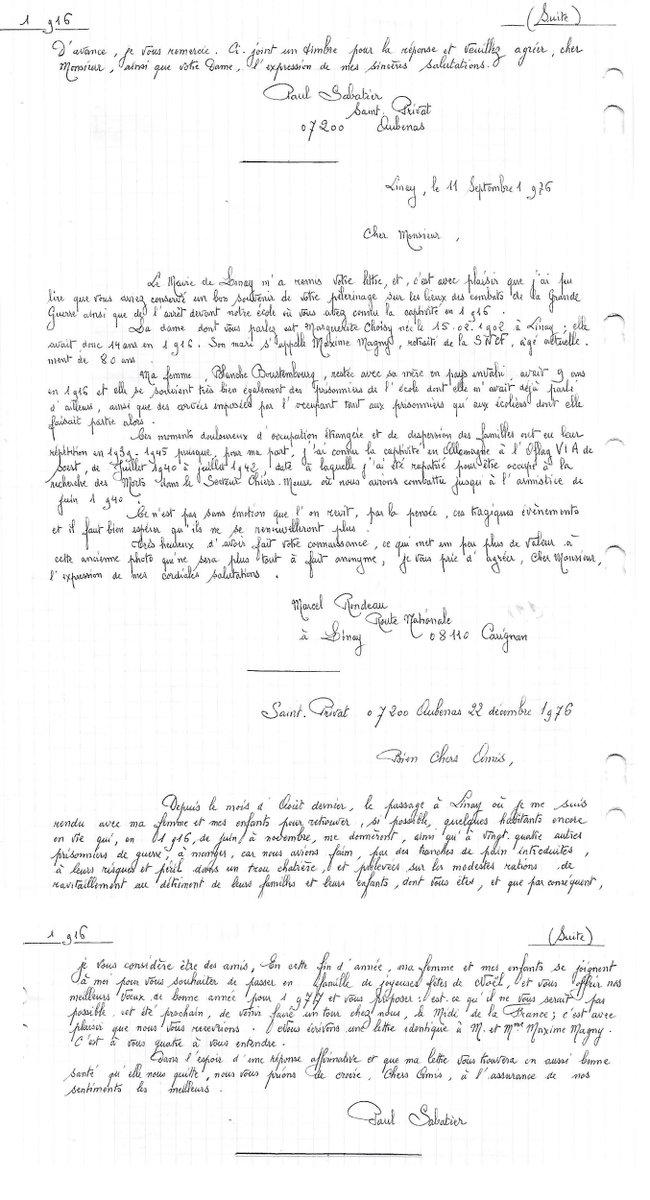 1 916 (Suite)
D'avance, je vous remercie. Ci-joint un timbre pour la réponse et veuillez agréer, cher
Monsieur, ainsi que votre Dame, l'expression de mes sincères salutations.
Paul Sabatier
Saint. Privat
07200 Aubenas
Linay, le 11 Septembre 1 976
Cher Monsieur,
Le Maire de Linay m'a remis votre lettre, et, c'est avec plaisir que j'ai pu
lire que vous aviez conservé un bon souvenir de votre pèlerinage sur les lieux des combats de la Grande
Guerre ainsi que de l'arrêt devant notre école où vous aviez connu la captivité en 1 916.
La dame dont vous parlez est Marguerite Choisy née le 15.02.1902 à Linay; elle
avait donc 14 ans en 1 916. Son mari s'appelle Maxime Magny, retraité de la SNCF, âgé actuelle-
ment de 80 ans.
Ma femme, Blanche Boustembourg, restée avec sa mère en pays envahi, avait 9 ans
en 1 916 et elle se souvient très bien également des prisonniers de l'école dont elle m'avait déjà parlé
d'ailleurs, ainsi que des corvées imposées par l'occupant tant aux prisonniers qu'aux écoliers dont elle
faisait partie alors.
Ces moments douloureux d'occupation étrangère et de dispersion des familles ont eu leur
répétition en 1939-1945 puisque, pour ma part, j'ai connu la captivité en Allemagne à l'Oflag VI A de
Soest, de Juillet 1940 à juillet 1942, date à laquelle j'ai été rapatrié pour être occupé à la
recherche des Morts dans le Secteur Chiers-Meuse où nous avions combattu jusqu'à l'armistice de
juin 1 940.
Ce n'est pas sans émotion que l'on revit, par la pensée, ces tragiques évènements
et il faut bien espérer qu'ils ne se renouvelleront plus.
Très heureux d'avoir fait votre connaissance, ce qui met un peu plus de valeur à
cette ancienne photo qui ne sera plus tout à fait anonyme, je vous prie d'agréer, Cher Monsieur,
l'expression de mes cordiales salutations.
Marcel Rondeau
Route Nationale
à Linay 08110 Carignan
Saint. Privat 07200 Aubenas 22 décembre 1976
Bien Chers Amis,
Depuis le mois d'Août dernier, le passage à Linay où je me suis
rendu avec ma femme et mes enfants pour retrouver, si possible, quelques habitants encore
en vie qui, en 1 916, de juin à novembre, me donnèrent, ainsi qu'à vingt-quatre autres
prisonniers de guerre, à manger, car nous avions faim, par des tranches de pain introduites,
à leurs risques et péril dans un trou chatière, et prélevées sur les modestes rations de
ravitaillement au détriment de leurs familles et leurs enfants, dont vous êtes, et que par conséquent,
1 916 (Suite)
je vous considère être des amis, En cette fin d'année, ma femme et mes enfants se joignent
à moi pour vous souhaiter de passer en famille de joyeuses fêtes de Noël, et vous offrir nos
meilleurs vœux de bonne année pour 1 977 et vous proposer : est-ce qu'il ne vous serait pas
possible, cet été prochain, de venir faire un tour chez nous, le Midi de la France; c'est avec
plaisir que nous vous recevrions. Nous écrivons une lettre identique à M. et Mme Maxime Magny.
C'est à vous quatre à vous entendre.
Dans l'espoir d'une réponse affirmative et que ma lettre vous trouvera en aussi bonne
santé qu'elle nous quitte, nous vous prions de croire, Chers Amis, à l'assurance de nos
sentiments les meilleurs.
Paul Sabatier